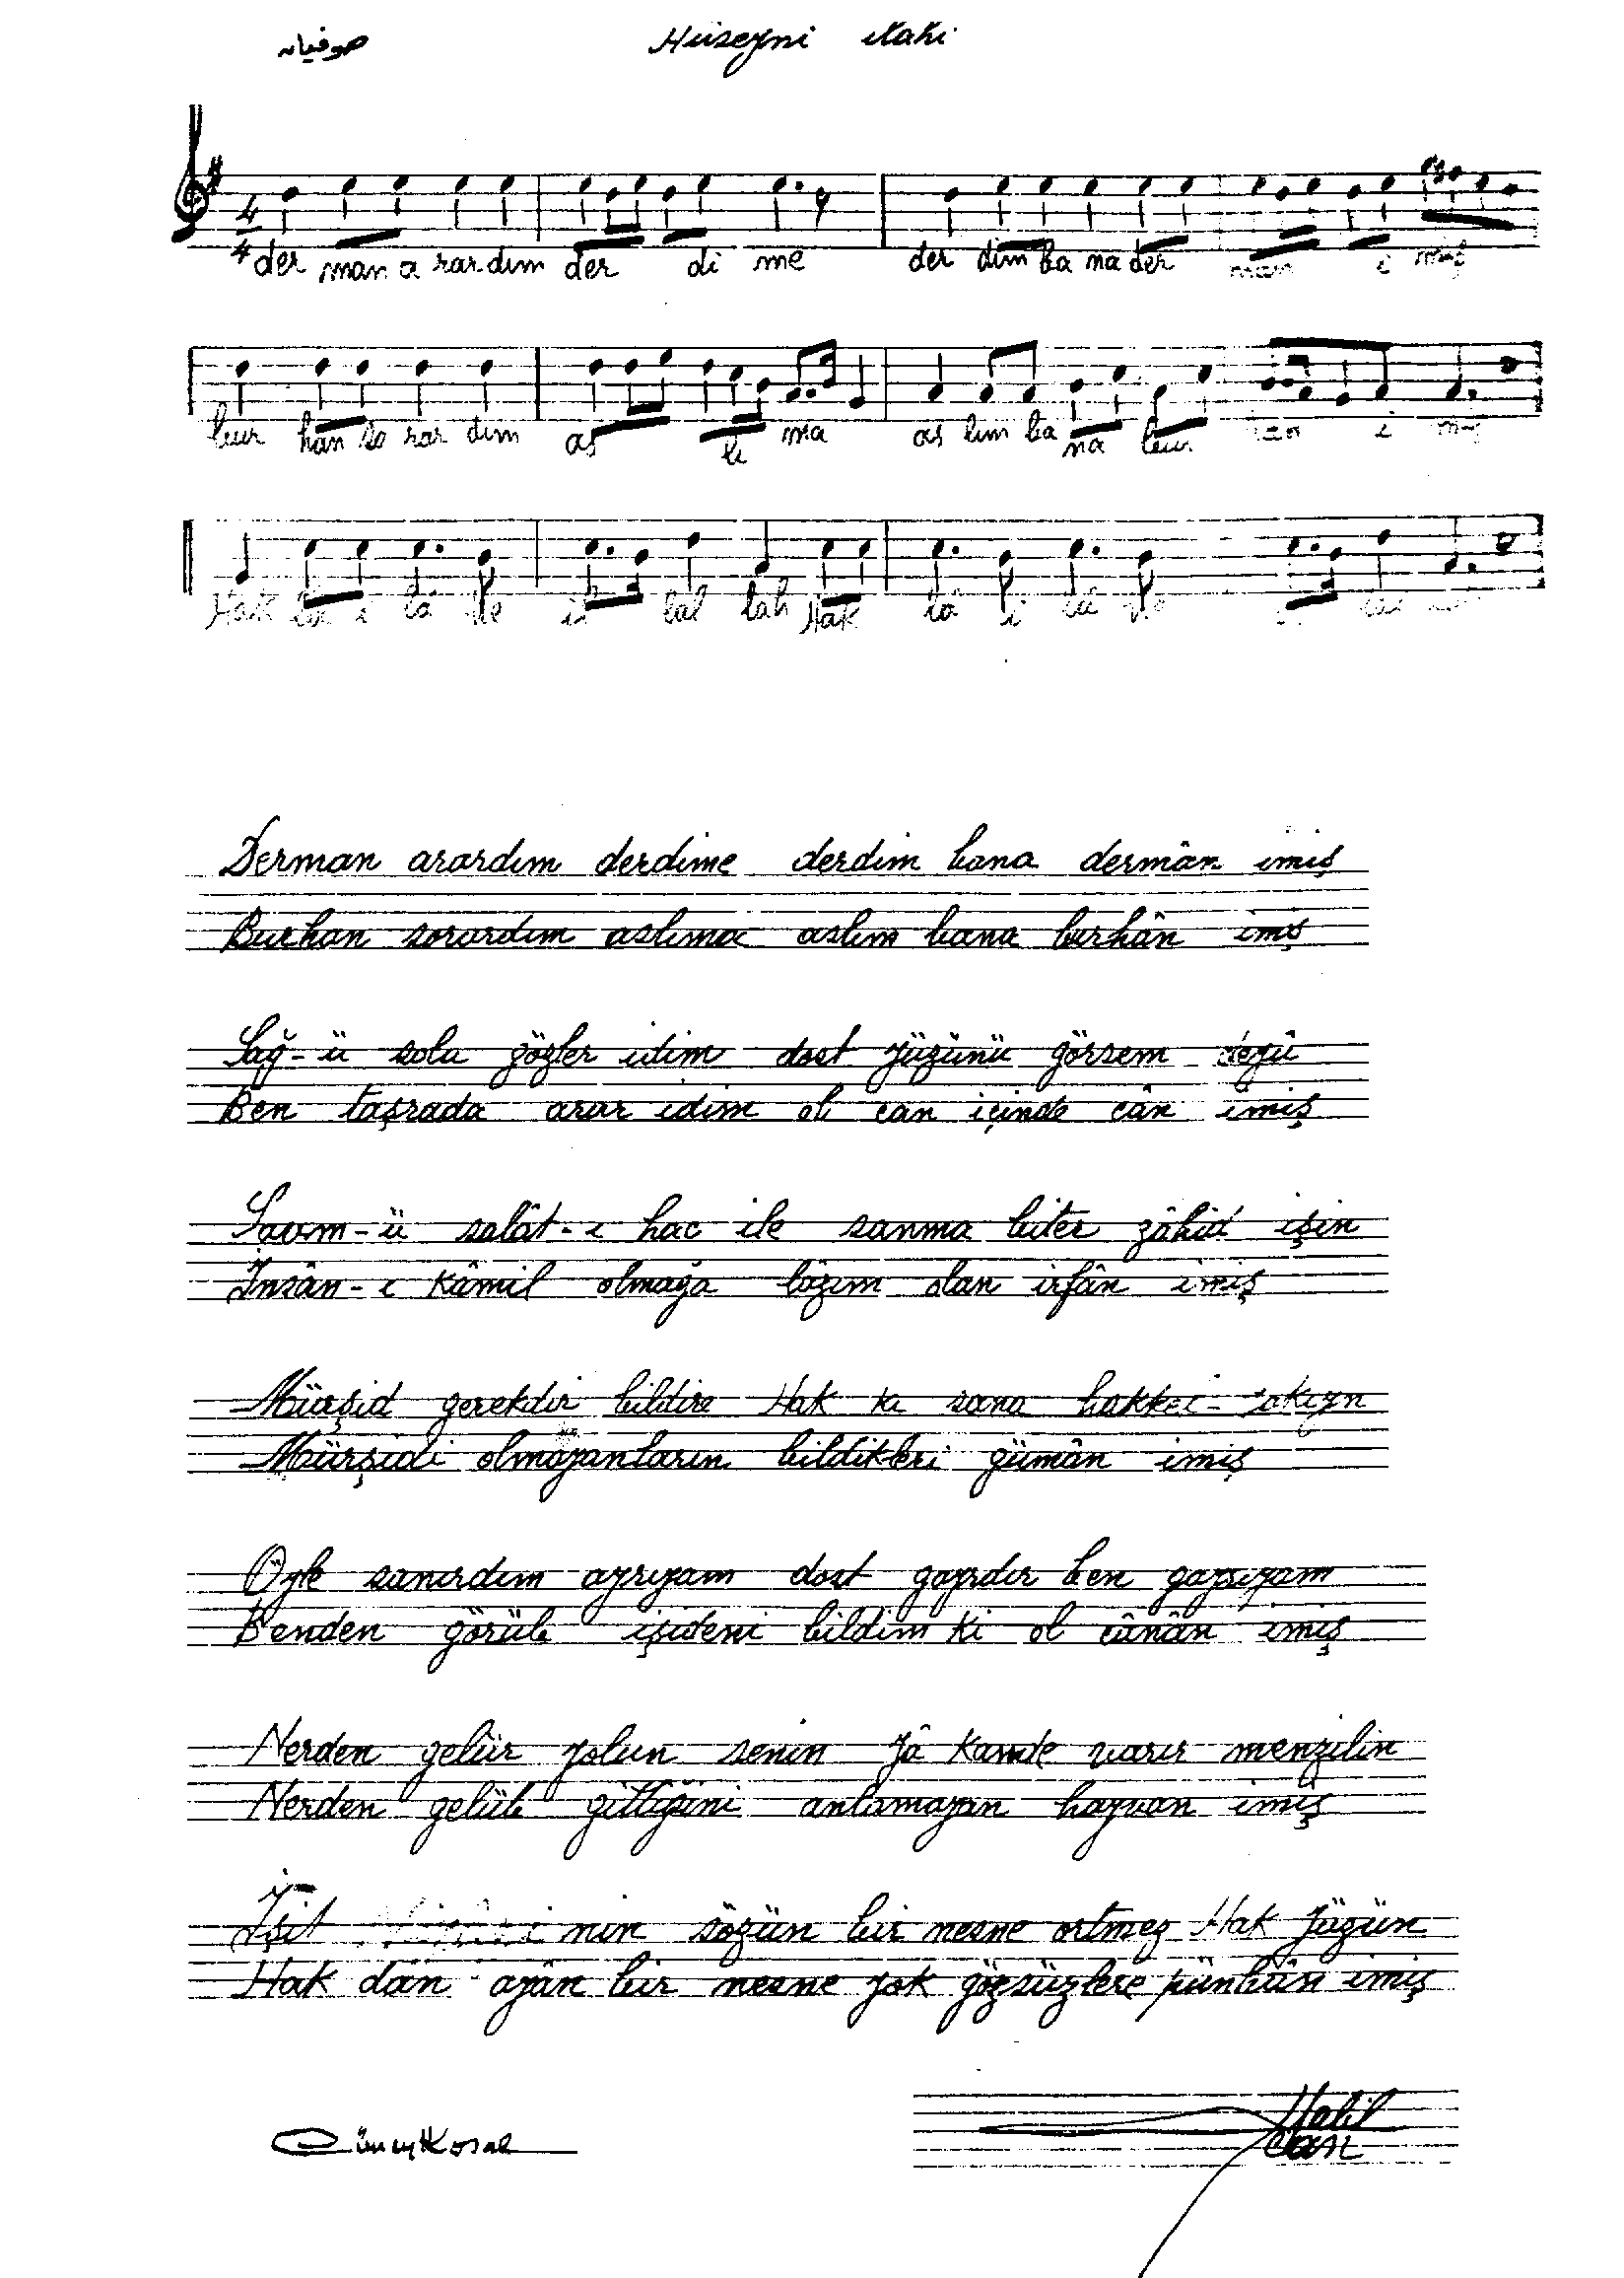 صوفيان Hüseyni ilahi
4 4
der man a rar dım der di me der dim ba na der man i miş
bur han so rar dım as lı ma as lım ba na bur i
Hak lâ i lâ he il lal lah Hak lâ i lâ he
Derman arardım derdime derdim bana dermân imiş
Burhan sorardım aslıma aslım bana burhân imiş
Sağ-ü solu gözler idim dost yüzünü görsem deyû
Ben taşrada arar idim ol can içinde cân imiş
Savm-ü salât-ı hac ile sanma biter zâhid işin
İnsân-ı kâmil olmağa lâzım olan irfân imiş
Mürşid gerekdir bildire Hak kı sana hakkel-yakıyn
Mürşidi olmayanların bildikleri gümân imiş
Öyle sanırdım ayrıyam dost gayrdır ben gayrıyam
Benden görüb işideni bildim ki ol cânân imiş
Nerden gelür yolun senin yâ kande varır menzilin
Nerden gelüb gittiğini anlamayan hayvan imiş
İşit nin sözün bir nesne örtmez Hak yüzün
Hak dan ayân bir nesne yok gözsüzlere pünhân imiş
Cüneyd Kosal Halil
Can